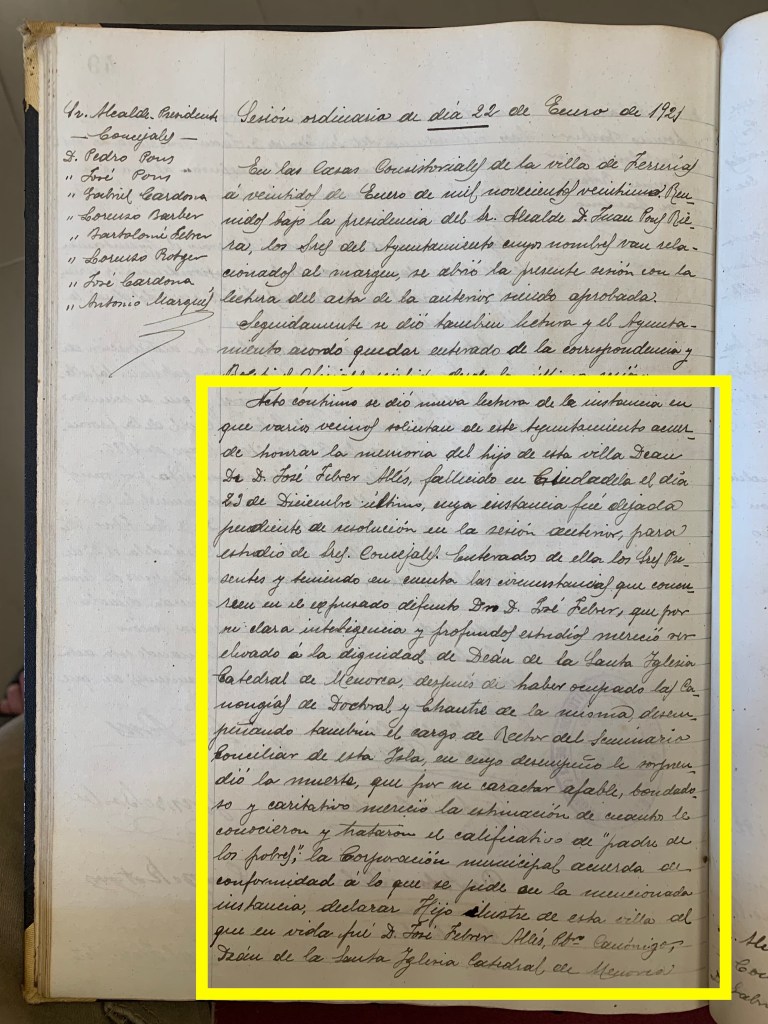 Sr. Alcalde-Presidente
— Concejales —
D. Pedro Pons
" José Pons "
" Gabriel Cardona
" Lorenzo Barber
" Bartolomé Febrer
" Lorenzo Rotger
" José Cardona
" Antonio Marqués
Sesión ordinaria de día 22 de Enero de 1921
En las Casas Consistoriales de la villa de Ferrerías
á veintidos de Enero de mil novecientos veintiuno Reu-
nidos bajo la presidencia del Sr. Alcalde D. Juan Pons Rie-
ra, los Sres del Ayuntamiento cuyos nombres van rela-
cionados al margen, se abrió la presente sesión con la
lectura del acta de la anterior, siendo aprobada.
Seguidamente se dió tambien lectura y el Ayunta-
miento acordó quedar enterado de la correspondencia y
Acto contínuo se dió nueva lectura de la instancia en
que varios vecinos solicitan de este Ayuntamiento acuer-
de honrar la memoria del hijo de esta villa Dean
Dr D. José Febrer Allés, fallecido en Ciudadela el día
23 de Diciembre último, cuya instancia fué dejada
pendiente de resolución en la sesión anterior, para
estudio de Sres. Concejales. Enterados de ella los Sres Pre-
sentes y teniendo en cuenta las circunstancias que concu-
rren en el expresado difunto Dr D. José Febrer, que por
su clara inteligencia y profundos estudios mereció ser
elevado á la dignidad de Deán de la Santa Iglesia
Catedral de Menorca, después de haber ocupado las Ca-
nongías de Doctoral y Chantre de la misma desem-
peñando tambien el cargo de Rector del Seminario
Conciliar de esta Isla, en cuyo desempeño le sorpren-
dió la muerte, que por su caracter afable, bondado-
so y caritativo mereció la estimación de cuanto le
conocieron y trataron el calificativo de "padre de
los pobres", la Corporación municipal acuerda de
conformidad á lo que se pide en la mencionada
instancia, declarar Hijo ilustre de esta villa al
que en vida fué D. José Febrer Allés, Pbro Canónigo,
Deán de la Santa Iglesia Catedral de Menorca